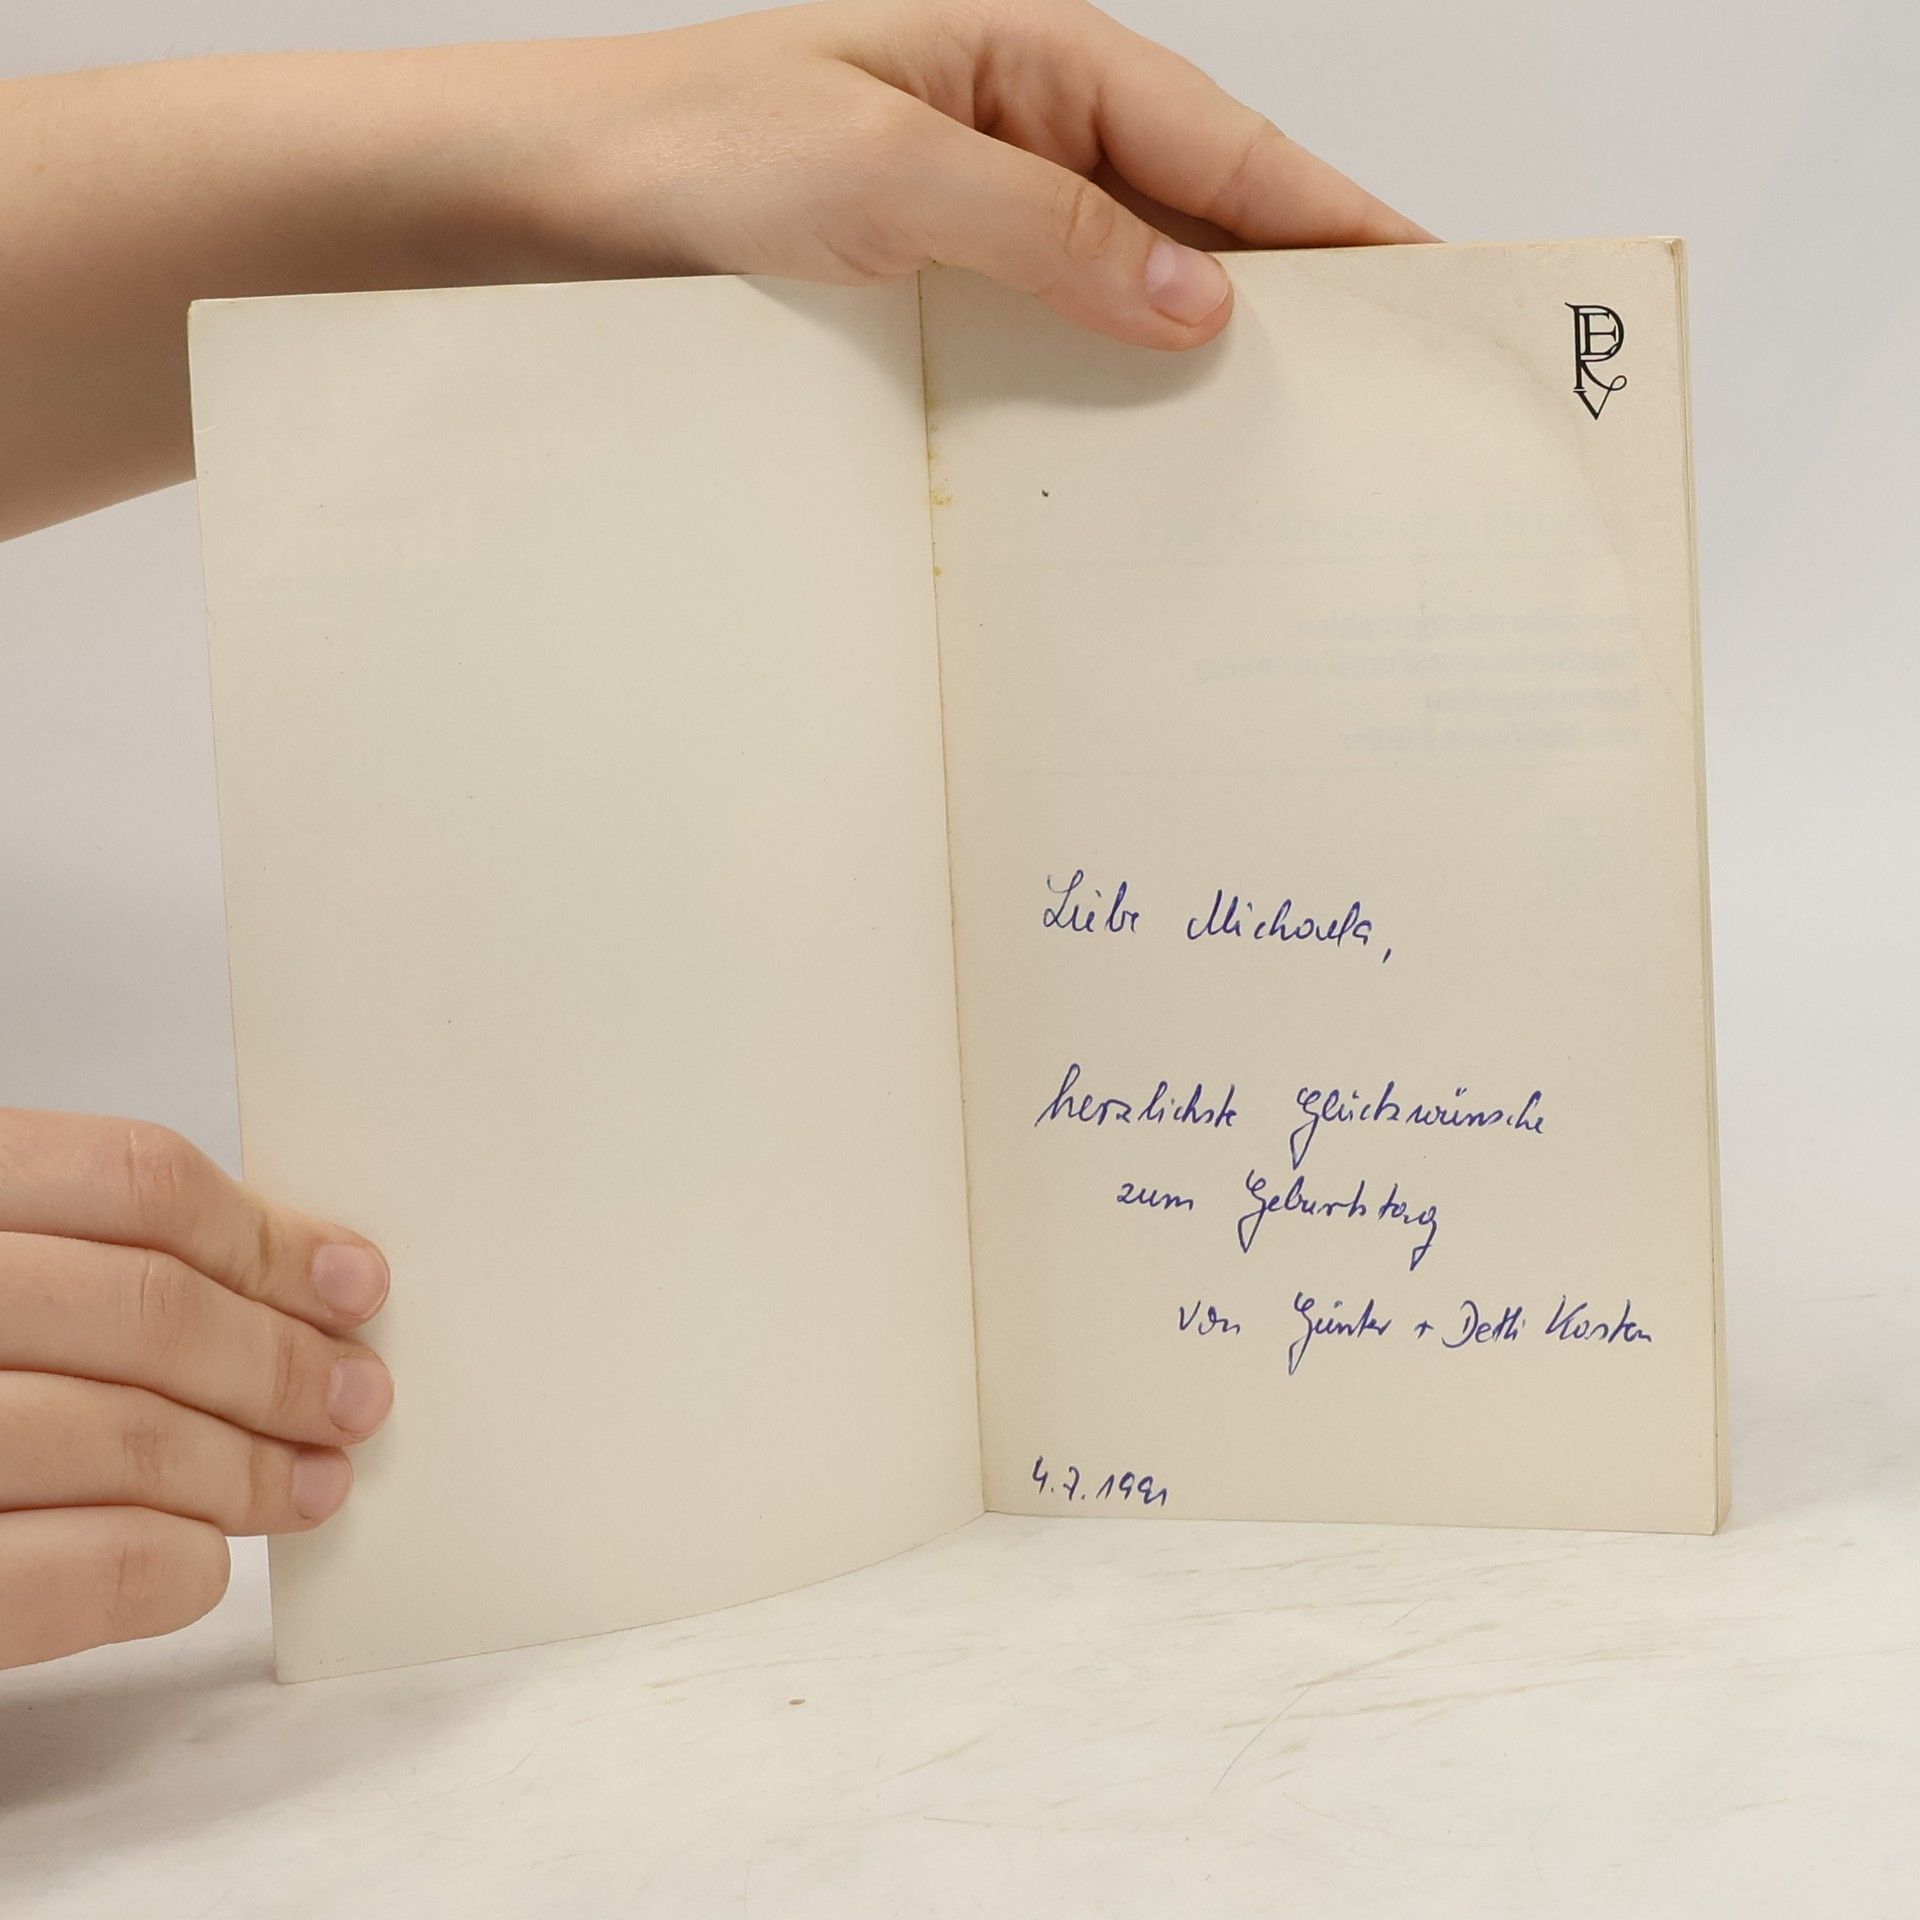 PERV
Liebe Michaela,
herzlichste Glückwünsche
zum Geburtstag
von Günter + Detti Korten
4.7.1991